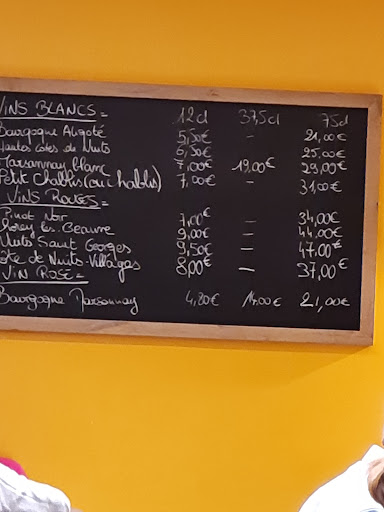 VINS BLANCS = 12cl 37,5cl 75cl
Bourgogne Aligoté 5,50€ - 21,00€
Hautes Cotes de Nuits 6,50€ 25,00€
Marsannay blanc 7,00€ 19,00€ 29,00€
Petit Chablis (ou chablis) 7,00€ - 31,00€
VINS ROUGES =
Pinot Noir 7,00€ - 34,00€
Chorey les Beaune 9,00€ - 44,00€
Nuits Saint Georges 9,50€ - 47,00€
Côte de Nuits-Villages 8,00€ - 37,00€
VIN ROSÉ =
Bourgogne Marsannay 4,80€ 14,00€ 21,00€